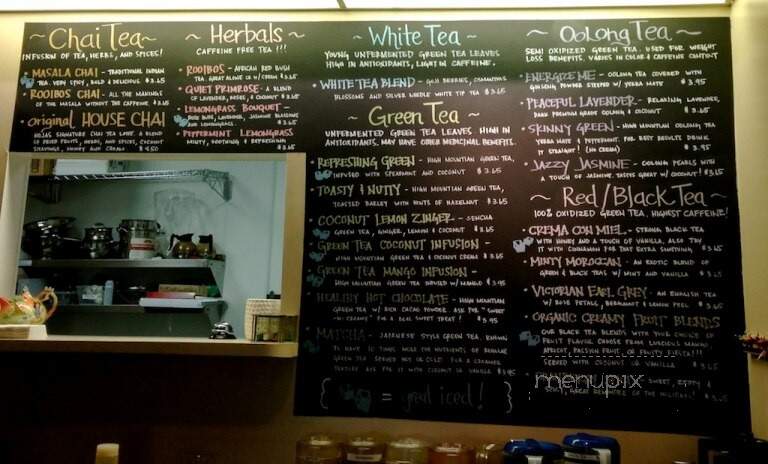 ~ Chai Tea ~
INFUSION OF TEA, HERBS, AND SPICES!
MASALA CHAI - TRADITIONAL INDIAN
TEA. VERY SPICY, BOLD & DELICIOUS $3.65
ROOIBOS CHAI - ALL THE MAKINGS
OF THE MASALA WITHOUT THE CAFFEINE $3.65
• Original HOUSE CHAI
HOJAS SIGNATURE CHAI TEA LATTE. A BLEND
OF DRIED FRUITS, HERBS, AND SPICES, COCONUT
$4.50
~ Herbals ~
CAFFEINE FREE TEA!!!
• ROOIBOS - AFRICAN RED BUSH
TEA. GREAT ALONE OR W/ CREAM $3.65
• QUIET PRIMROSE - A BLEND
OF LAVENDER, ROSES, & COCONUT $3.65
LEMONGRASS BOUQUET -
LAVENDER, JASMINE BLOSSOMS
AND LEMONGRASS. $3.65
• PEPPERMINT LEMONGRASS
MINTY, SOOTHING & REFRESHING $3.65
~ White Tea ~
YOUNG UNFERMENTED GREEN TEA LEAVES
HIGH IN ANTIOXIDANTS, LIGHT IN CAFFEINE.
WHITE TEA BLEND - GOJI BERRIES,
BLOSSOMS AND SILVER NEEDLE WHITE TIP TEA $3.65
~ Green Tea ~
UNFERMENTED GREEN TEA LEAVES HIGH IN
ANTIOXIDANTS. MAY HAVE OTHER MEDICINAL BENEFITS.
• REFRESHING GREEN - HIGH MOUNTIAN GREEN TEA,
INFUSED WITH SPEARMINT AND COCONUT $3.65
• TOASTY & NUTTY - HIGH MOUNTIAN GREEN TEA,
TOASTED BARLEY WITH HINTS OF HAZELNUT $3.65
• COCONUT LEMON ZINGER - SENCHA
GREEN TEA, GINGER, LEMON & COCONUT $3.65
• GREEN TEA COCONUT INFUSION -
HIGH MOUNTIAN GREEN TEA & COCONUT CREMA $3.65
• GREEN TEA MANGO INFUSION -
HIGH MOUNTIAN GREEN TEA INFUSED W/ MANGO $3.95
• HEALTHY HOT CHOCOLATE - HIGH MOUNTIAN
GREEN TEA W/ RICH CACAO POWDER. ASK FOR "SWEET
N CREAMY" FOR A REAL SWEET TREAT! $3.95
• MATCHA - JAPANESE STYLE GREEN TEA. KNOWN
TO HAVE 10 TIMES MORE THE NUTRIENTS OF REGULAR
GREEN TEA. SERVED HOT OR COLD. FOR A CREAMIER
TEXTURE ASK FOR IT WITH COCONUT OR VANILLA
{ = great iced! }
~ Oolong Tea ~
SEMI OXIDIZED GREEN TEA. USED FOR WEIGHT
LOSS BENEFITS. VARIES IN COLOR & CAFFEINE CONTENT
• ENERGIZE ME - OOLONG TEA COVERED WITH
GINSENG POWDER STEEPED W/ YERBA MATE $3.95
• PEACEFUL LAVENDER - RELAXING LAVENDER,
DARK PREMIUM GRADE OOLONG & COCONUT $3.65
• SKINNY GREEN - HIGH MOUNTIAN OOLONG TEA
YERBA MATE & PEPPERMINT. FOR BEST RESULTS DRINK
IT STRAIGHT! (NO CREAM) $3.95
• JAZZY JASMINE - OOLONG PEARLS WITH
A TOUCH OF JASMINE. TASTES GREAT W/ COCONUT! $3.65
~ Red/Black Tea ~
100% OXIDIZED GREEN TEA, HIGHEST CAFFEINE!
• CREMA CON MIEL - STRONG BLACK TEA
WITH HONEY AND A TOUCH OF VANILLA. ALSO TRY
IT WITH CINNAMON FOR THAT EXTRA SOMETHING $3.65
• MINTY MOROCCAN - AN EXOTIC BLEND OF
GREEN & BLACK TEAS W/ MINT AND VANILLA $3.65
• VICTORIAN EARL GREY - AN ENGLISH TEA
W/ ROSE PETALS, BERGAMOT & LEMON PEEL $3.65
• ORGANIC CREAMY FRUIT BLENDS
OUR BLACK TEA BLENDS WITH YOUR CHOICE OF
FRUIT FLAVOR. CHOOSE FROM LUSCIOUS MANGO,
APRICOT, PASSION FRUIT, OR FRUITY FIESTA!!!
SERVED WITH COCONUT OR VANILLA $3.65
SWEET,
SPICY, GREAT REMINDER OF THE HOLIDAYS!
menupix